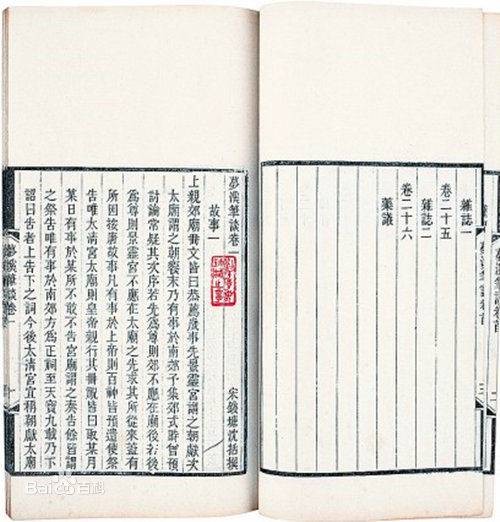 雜誌一
卷二十五
雜誌二
卷二十六
藥議
夢溪筆談卷一
宋錢塘沈括撰
故事一
上親郊廟冊文皆曰恭薦歲事先景靈宮謂之朝獻次
太廟謂之朝饗末乃有事於南郊予集郊式時曾預
討論常疑其次序若先爲尊則郊不應在廟後若後
爲尊則景靈宮不應在太廟之先求其所從來蓋有
所因按唐故事凡有事於上帝則百神皆預遣使祭
告唯太清宮太廟則皇帝親行其冊祝皆曰取某月
某日有事於某所不敢不告宮廟謂之奏告餘皆謂
之祭告唯有事於南郊方爲正祠至天寶九載乃下
詔曰告者上告下之詞今後太清宮宜稱朝獻太廟
夢溪筆談卷一
Baidu百科